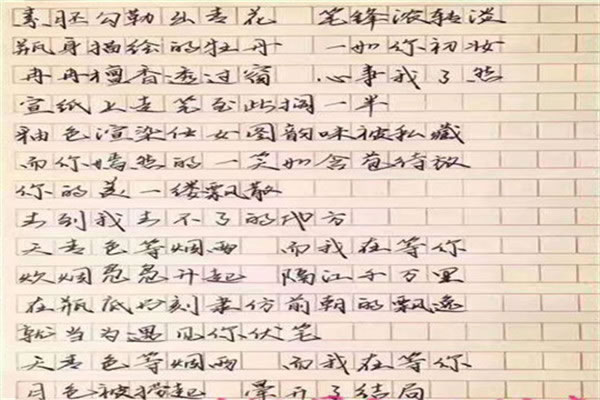 素胚勾勒出青花 笔锋浓转淡
瓶身描绘的牡丹 一如你初妆
冉冉檀香透过窗 心事我了然
宣纸上走笔至此搁一半
釉色渲染仕女图韵味被私藏
而你嫣然的一笑如含苞待放
你的美一缕飘散
去到我去不了的地方
天青色等烟雨 而我在等你
炊烟袅袅升起 隔江千万里
在瓶底书刻隶仿前朝的飘逸
就当为遇见你伏笔
天青色等烟雨 而我在等你
月色被捞起 晕开了结局